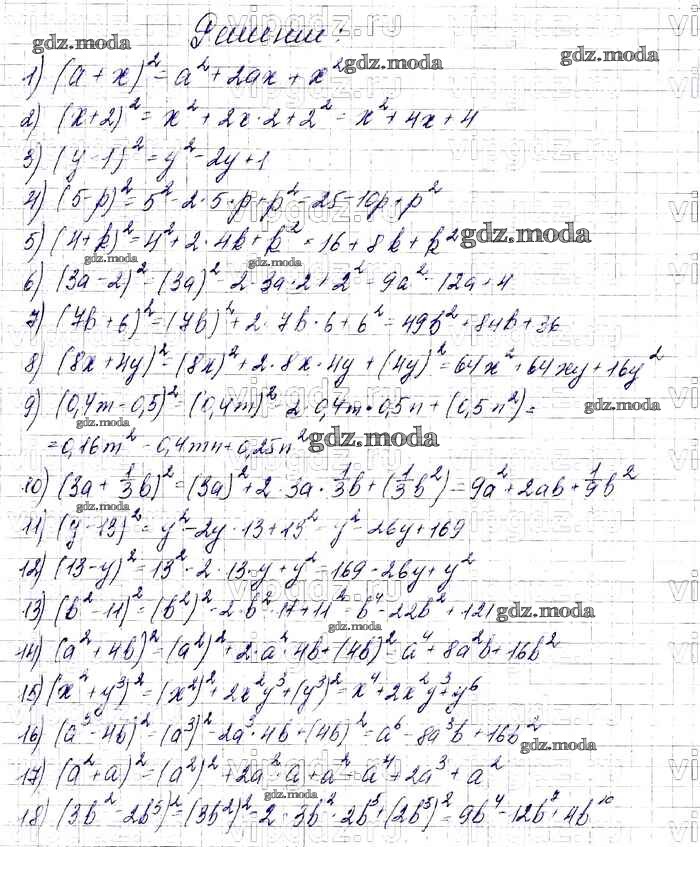 Решение:
1) (a + x)² = a² + 2ax + x²
2) (x+2)² = x² + 2x·2 + 2² = x² + 4x + 4
3) (y-1)² = y² - 2y + 1
4) (5-p)² = 5² - 2·5·p + p² = 25 - 10p + p²
5) (4+k)² = 4² + 2·4k + k² = 16 + 8k + k²
6) (3a-2)² = (3a)² - 2·3a·2 + 2² = 9a² - 12a + 4
7) (7b+6)² = (7b)² + 2·7b·6 + 6² = 49b² + 84b + 36
8) (8x+4y)² = (8x)² + 2·8x·4y + (4y)² = 64x² + 64xy + 16y²
9) (0,4m-0,5)² = (0,4m)² - 2·0,4m·0,5n + (0,5n²) =
= 0,16m² - 0,4mn + 0,25n²
10) (3a + 1/3b)² = (3a)² + 2·3a·1/3b + (1/3b²) = 9a² + 2ab + 1/9b²
11) (y-13)² = y² - 2y·13 + 13² = y² - 26y + 169
12) (13-y)² = 13² - 2·13·y + y² = 169 - 26y + y²
13) (b²-11)² = (b²)² - 2·b²·11 + 11² = b⁴ - 22b² + 121
14) (a²+4b)² = (a²)² + 2·a²·4b + (4b)² = a⁴ + 8a²b + 16b²
15) (x²+y³)² = (x²)² + 2x²y³ + (y³)² = x⁴ + 2x²y³ + y⁶
16) (a³-4b)² = (a³)² - 2a³·4b + (4b)² = a⁶ - 8a³b + 16b²
17) (a²+a)² = (a²)² + 2a²·a + a² = a⁴ + 2a³ + a²
18) (3b²-2b⁵)² = (3b²)² - 2·3b²·2b⁵ + (2b⁵)² = 9b⁴ - 12b⁷ + 4b¹⁰
gdz.moda
vipgdz.ru